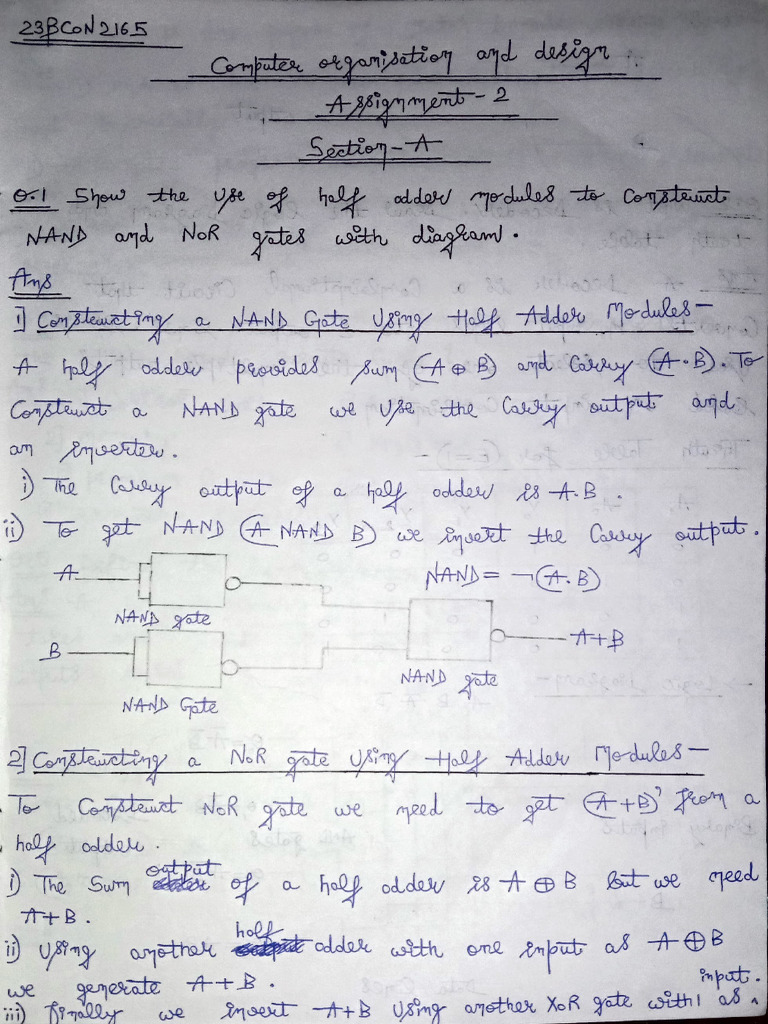 23BCON2165
Computer organisation and design
Assignment - 2
Section - A
Q.1 Show the use of half adder modules to Construct
NAND and NOR gates with diagram.
Ans
1] Constructing a NAND Gate Using Half Adder Modules -
A half adder provides sum (A ⊕ B) and Carry (A · B). To
Construct a NAND gate we use the Carry output and
an inverter.
i) The Carry output of a half adder is A.B.
ii) To get NAND (A NAND B) we invert the Carry output.
A
NAND = ¬(A.B)
NAND gate
A+B
B
NAND gate
NAND Gate
2] Constructing a NOR gate using Half Adder Modules -
To Construct NOR gate we need to get (A+B)' from a
half adder.
i) The Sum output of a half adder is A ⊕ B but we need
A+B.
ii) Using another half adder with one input as A ⊕ B
we generate A+B.
iii) finally we invert A+B using another XOR gate with 1 as input.